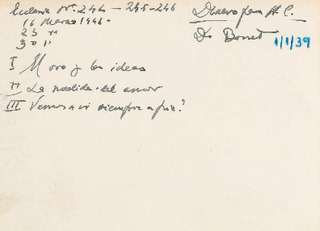 Ecclesia Nº. 244 - 245-246
16 Marzo 1946.
23 "
30 "
Dinero para A. C.
Dr. Bonet
1/1/39
I El oro y las ideas
II La medida del amor
III Vamos a ir siempre a pie?